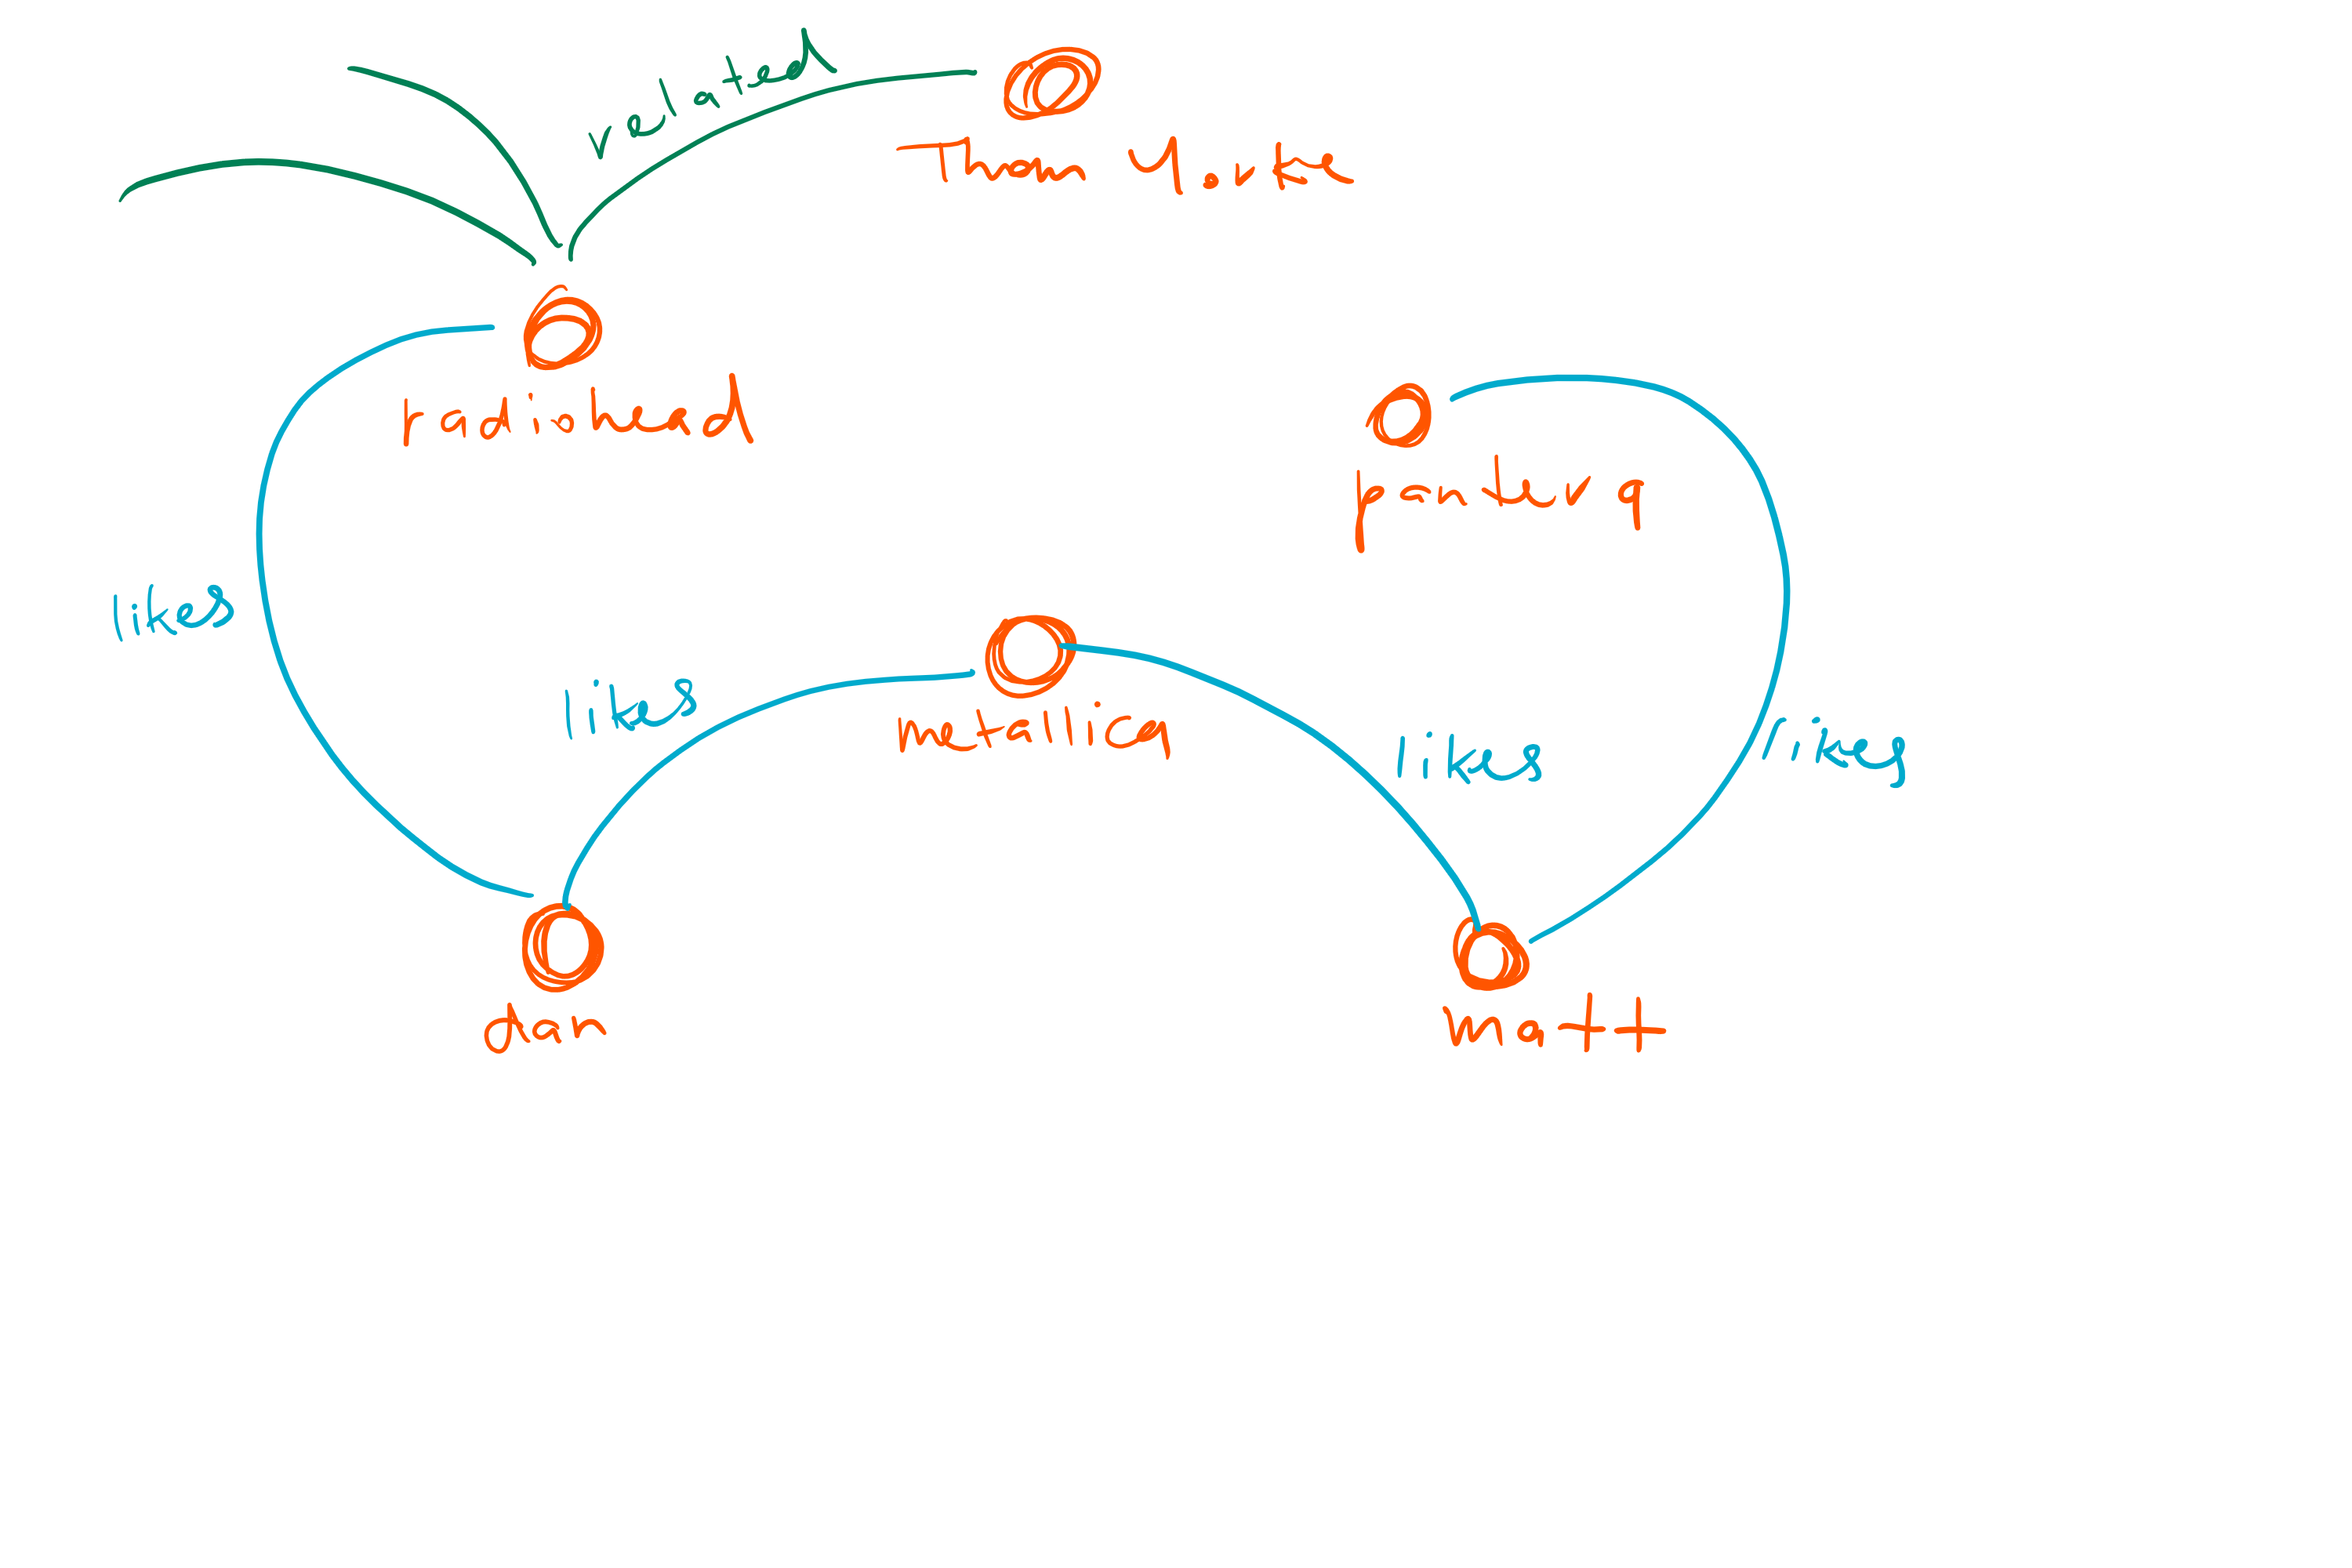 related
Thom Yorke
radiohead
pantera
likes
likes
metallica
likes
likes
dan
matt